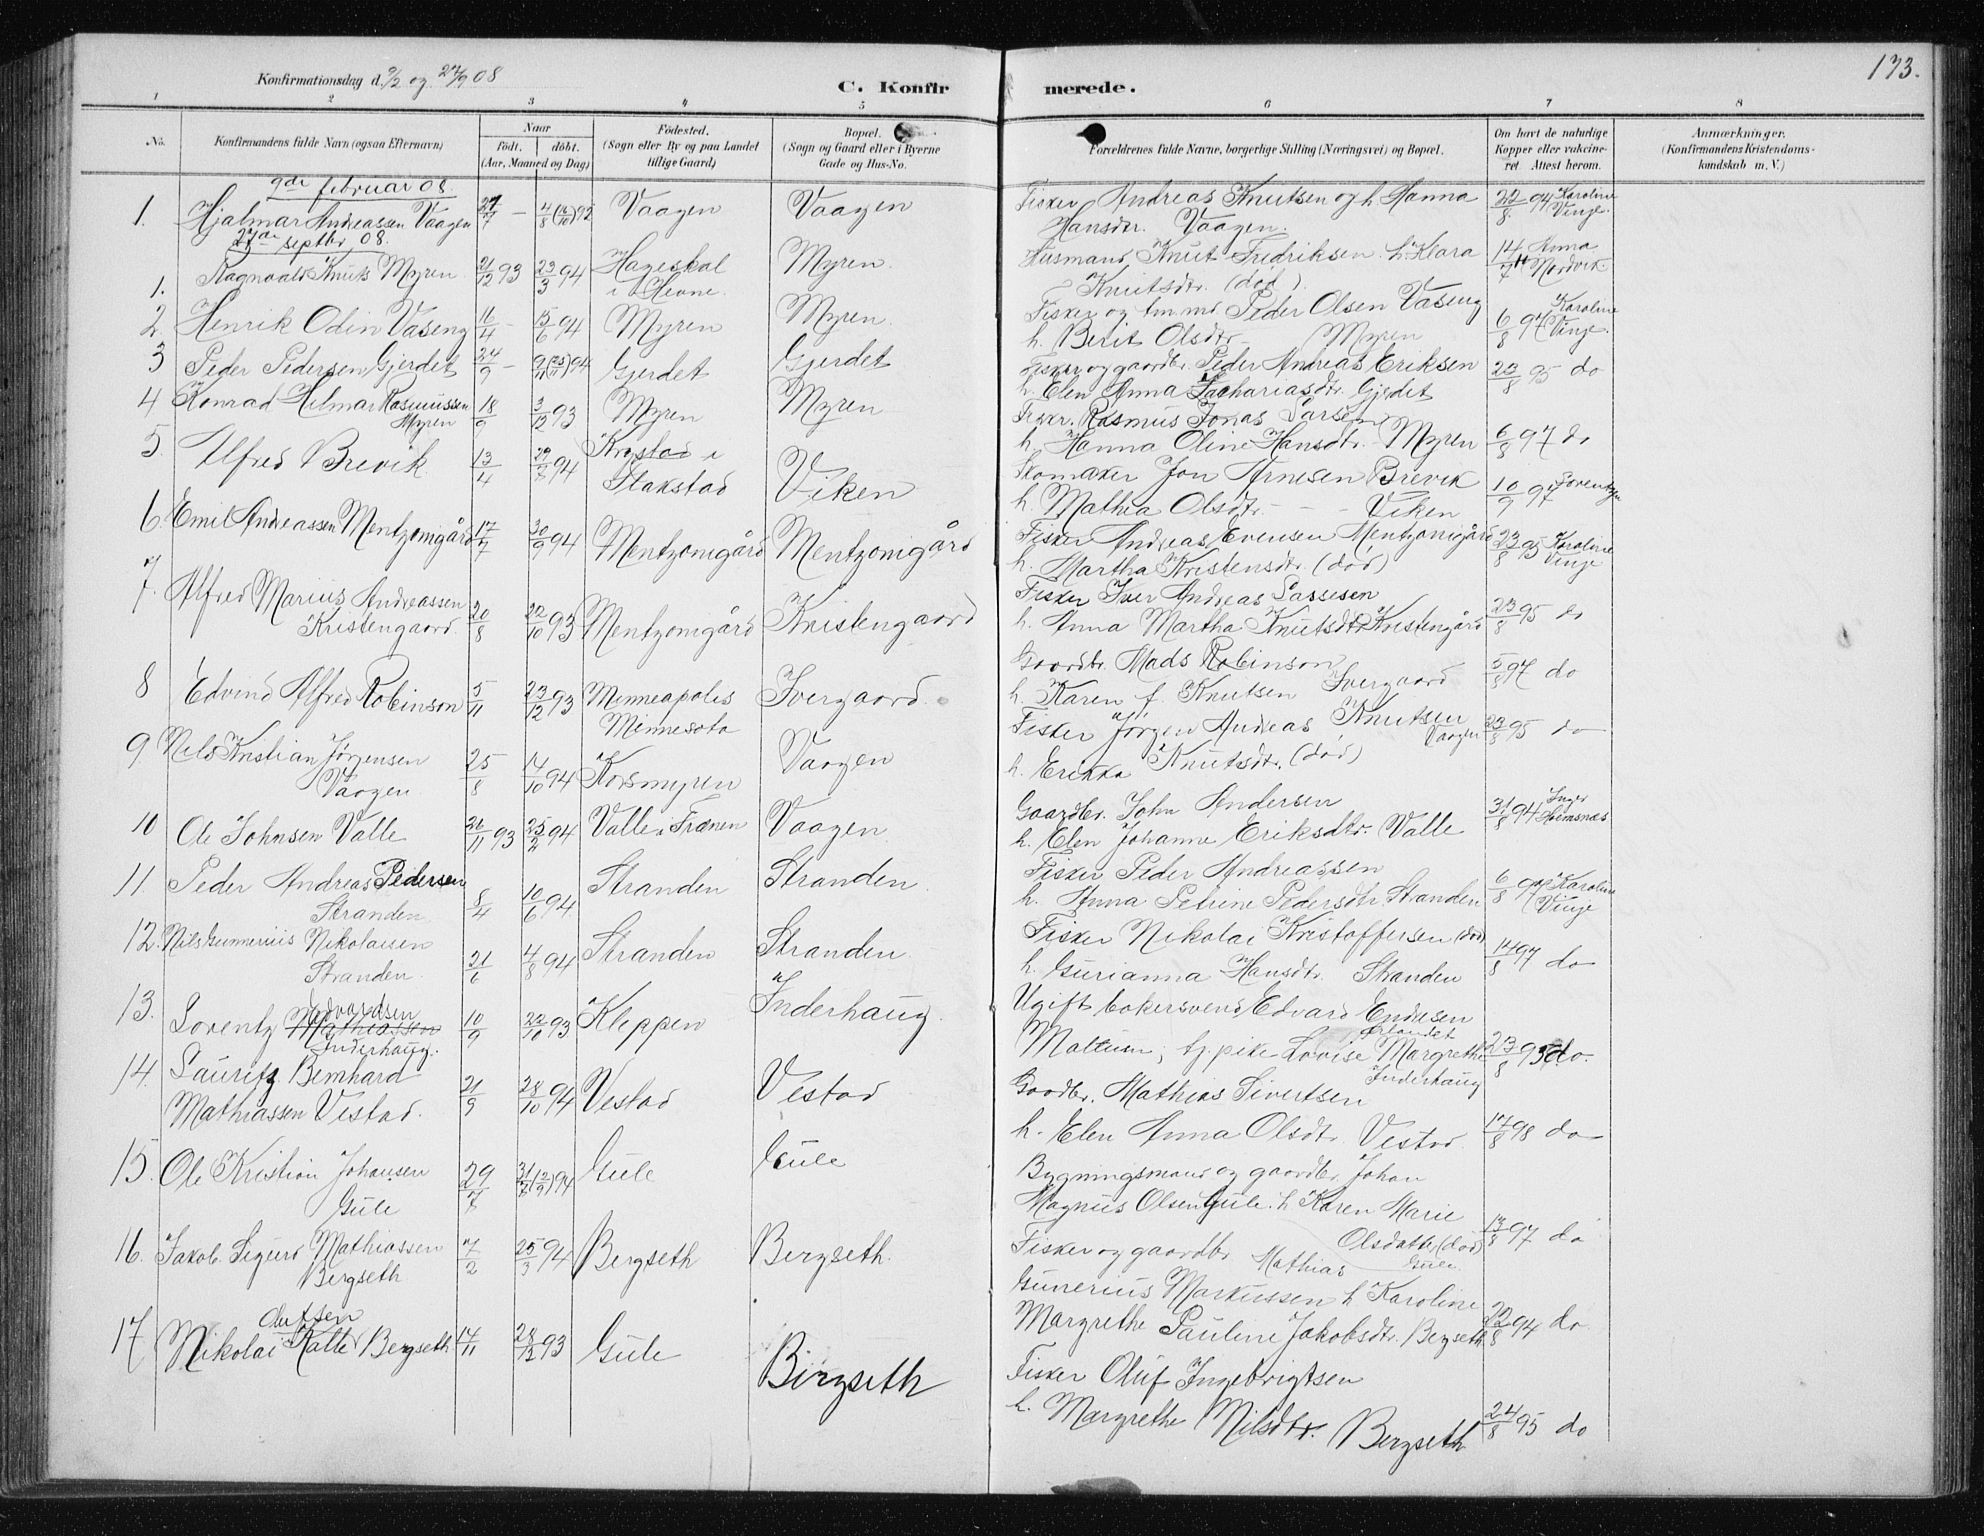 173.
Konfirmationsdag d. 9/2 og 27/9 08
C. Konfirmerede.
1 2 3 4 5 6 7 8
No.
Konfirmandens fulde Navn (ogsaa Efternavn)
Naar
født. døbt.
(Aar, Maaned og Dag)
Fødested.
(Sogn eller By og paa Landet
tillige Gaard)
Bopæl.
(Sogn og Gaard eller i Byerne
Gade og Hus-No.
Forældrenes fulde Navne, borgerlige Stilling (Næringsvei) og Bopæl.
Om havt de naturlige
Kopper eller vakcine-
ret. Attest herom.
Anmærkninger.
(Konfirmandens Kristendoms-
kundskab m. V.)
9de februar 08.
1. Hjalmar Andreassen Vaagen 27/7 – 4/8 92 Vaagen Vaagen Fisker Andreas Knutsen og h. Hanna 22/8 94 Karoline Vinje.
Hansdtr. Vaagen.
27de septbr 08.
1. Ragnvald Knuts Myren 21/12 93 23/3 94 Hageskal i Hevne. Myren. Husmand Knut Fredriksen h. Klara 14/7 Anna Nordvik
Knutsdtr. (død).
2. Henrik Odin Vaseng 16/4 – 15/6 94 Myren Myren. Fisker og Peder Olsen Vaseng 6/8 97 Karoline Vinje.
h. Berit Olsdtr – Myren
3 Peder Pedersen Gjerdet 24/9 – 9/11 (25/11) 94 Gjerdet Gjerdet Fisker og gaardbr. Peder Andreas Eriksen 23/8 95 do
h. Elen Anna Zachariasdtr. Gjerdet
4 Konrad Hilmar Rasmussen Myren 18/9 3/12 93 Myren Myren Fisker. Rasmus Jonas Larsen
h. Hanna Oline Hansdtr. Myren 6/8 97 do
5 Alfred Brevik 13/4 29/7 94 Krystad i Flakstad Viken Skomaker Jon Arnesen Brevik 10/9 97
h. Mathea Olsdtr. – – – Viken
6. Emil Andreassen Mentzonigård 17/7 30/9 94 Mentzonigård Mentzonigård Fisker Andreas Evensen Mentzonigård 23/8 95 Karoline Vinje
h. Martha Kristensdtr. (død)
7. Alfred Marius Andreassen
Kristengaard. 20/8 22/10 93 Mentzonigård Kristengaard Fisker Iver Andreas Lassesen
h. Anna Martha Knutsdtr. Kristengård 23/8 95 do
8 Edvind Alfred Robinson 5/11 23/12 93 Minneapolis Minnesota Ivergaard. Gaardbr. Mads Robinson 5/8 97 do
h. Karen f. Knutsen Ivergaard
9 Nils Kristian Jørgensen
Vaagen. 25/8 14/10 94 Korsmyren Vaagen Fisker Jørgen Andreas Knutsen Vaagen 23/8 95 do
h. Erikka Knutsdtr. (død)
10 Ole Johnsen Valle 26/11 93 25/2 94 Valle i Frænen Vaagen Gaardbr. John Andersen 31/8 94 Inger
h. Elen Johanne Eriksdtr. Valle
11. Peder Andreas Pedersen
Stranden 8/4 10/6 94 Stranden Stranden. Fisker Peder Andreassen
h. Anna Petrine Pedersdtr Stranden 6/8 97 Karoline Vinje
12. Nils Gunnerius Nikolaisen
Stranden. 21/6 4/8 94 Stranden Stranden Fisker Nikolai Kristoffersen (død)
h. Gurianna Hansdtr. Stranden 14/8 97 do
13. Lorentz Mathiassen Edvardsen
Inderhaug. 10/9 22/10 93 Kleppen Inderhaug. Ugift bokersvend Edvard Endresen
pike Lovise Margrethe Inderhaug 23/8 95 do.
14. Lauritz Bernhard
Mathiassen Vestad. 21/9 28/10 94 Vestad Vestad Gaardbr. Mathias Sivertsen
h. Elen Anna Olsdtr. Vestad 17/8 98 do
15. Ole Kristian Johansen
Gule 29/7 31/7 (2/9) 94 Gule Gule Bygningsmand og gaardbr. Johan
Magnus Olsen Gule. h Karen Marie
Olsdatter (død) Gule. 13/8 97 do
16. Jakob Sigurd Mathiassen
Bergseth 7/2 25/3 94 Bergseth Bergseth. Fisker og gaardbr Mathias
Gunerius Markussen h Karoline
Margrethe Pauline Jakobsdtr. Bergseth 22/8 94 do.
17 Nikolai Kalle Olufsen Bergseth 14/11 28/12 93 Gule Bergseth Fisker Oluf Ingebrigtsen
h. Margrethe Nilsdtr. Bergseth 24/8 95 do